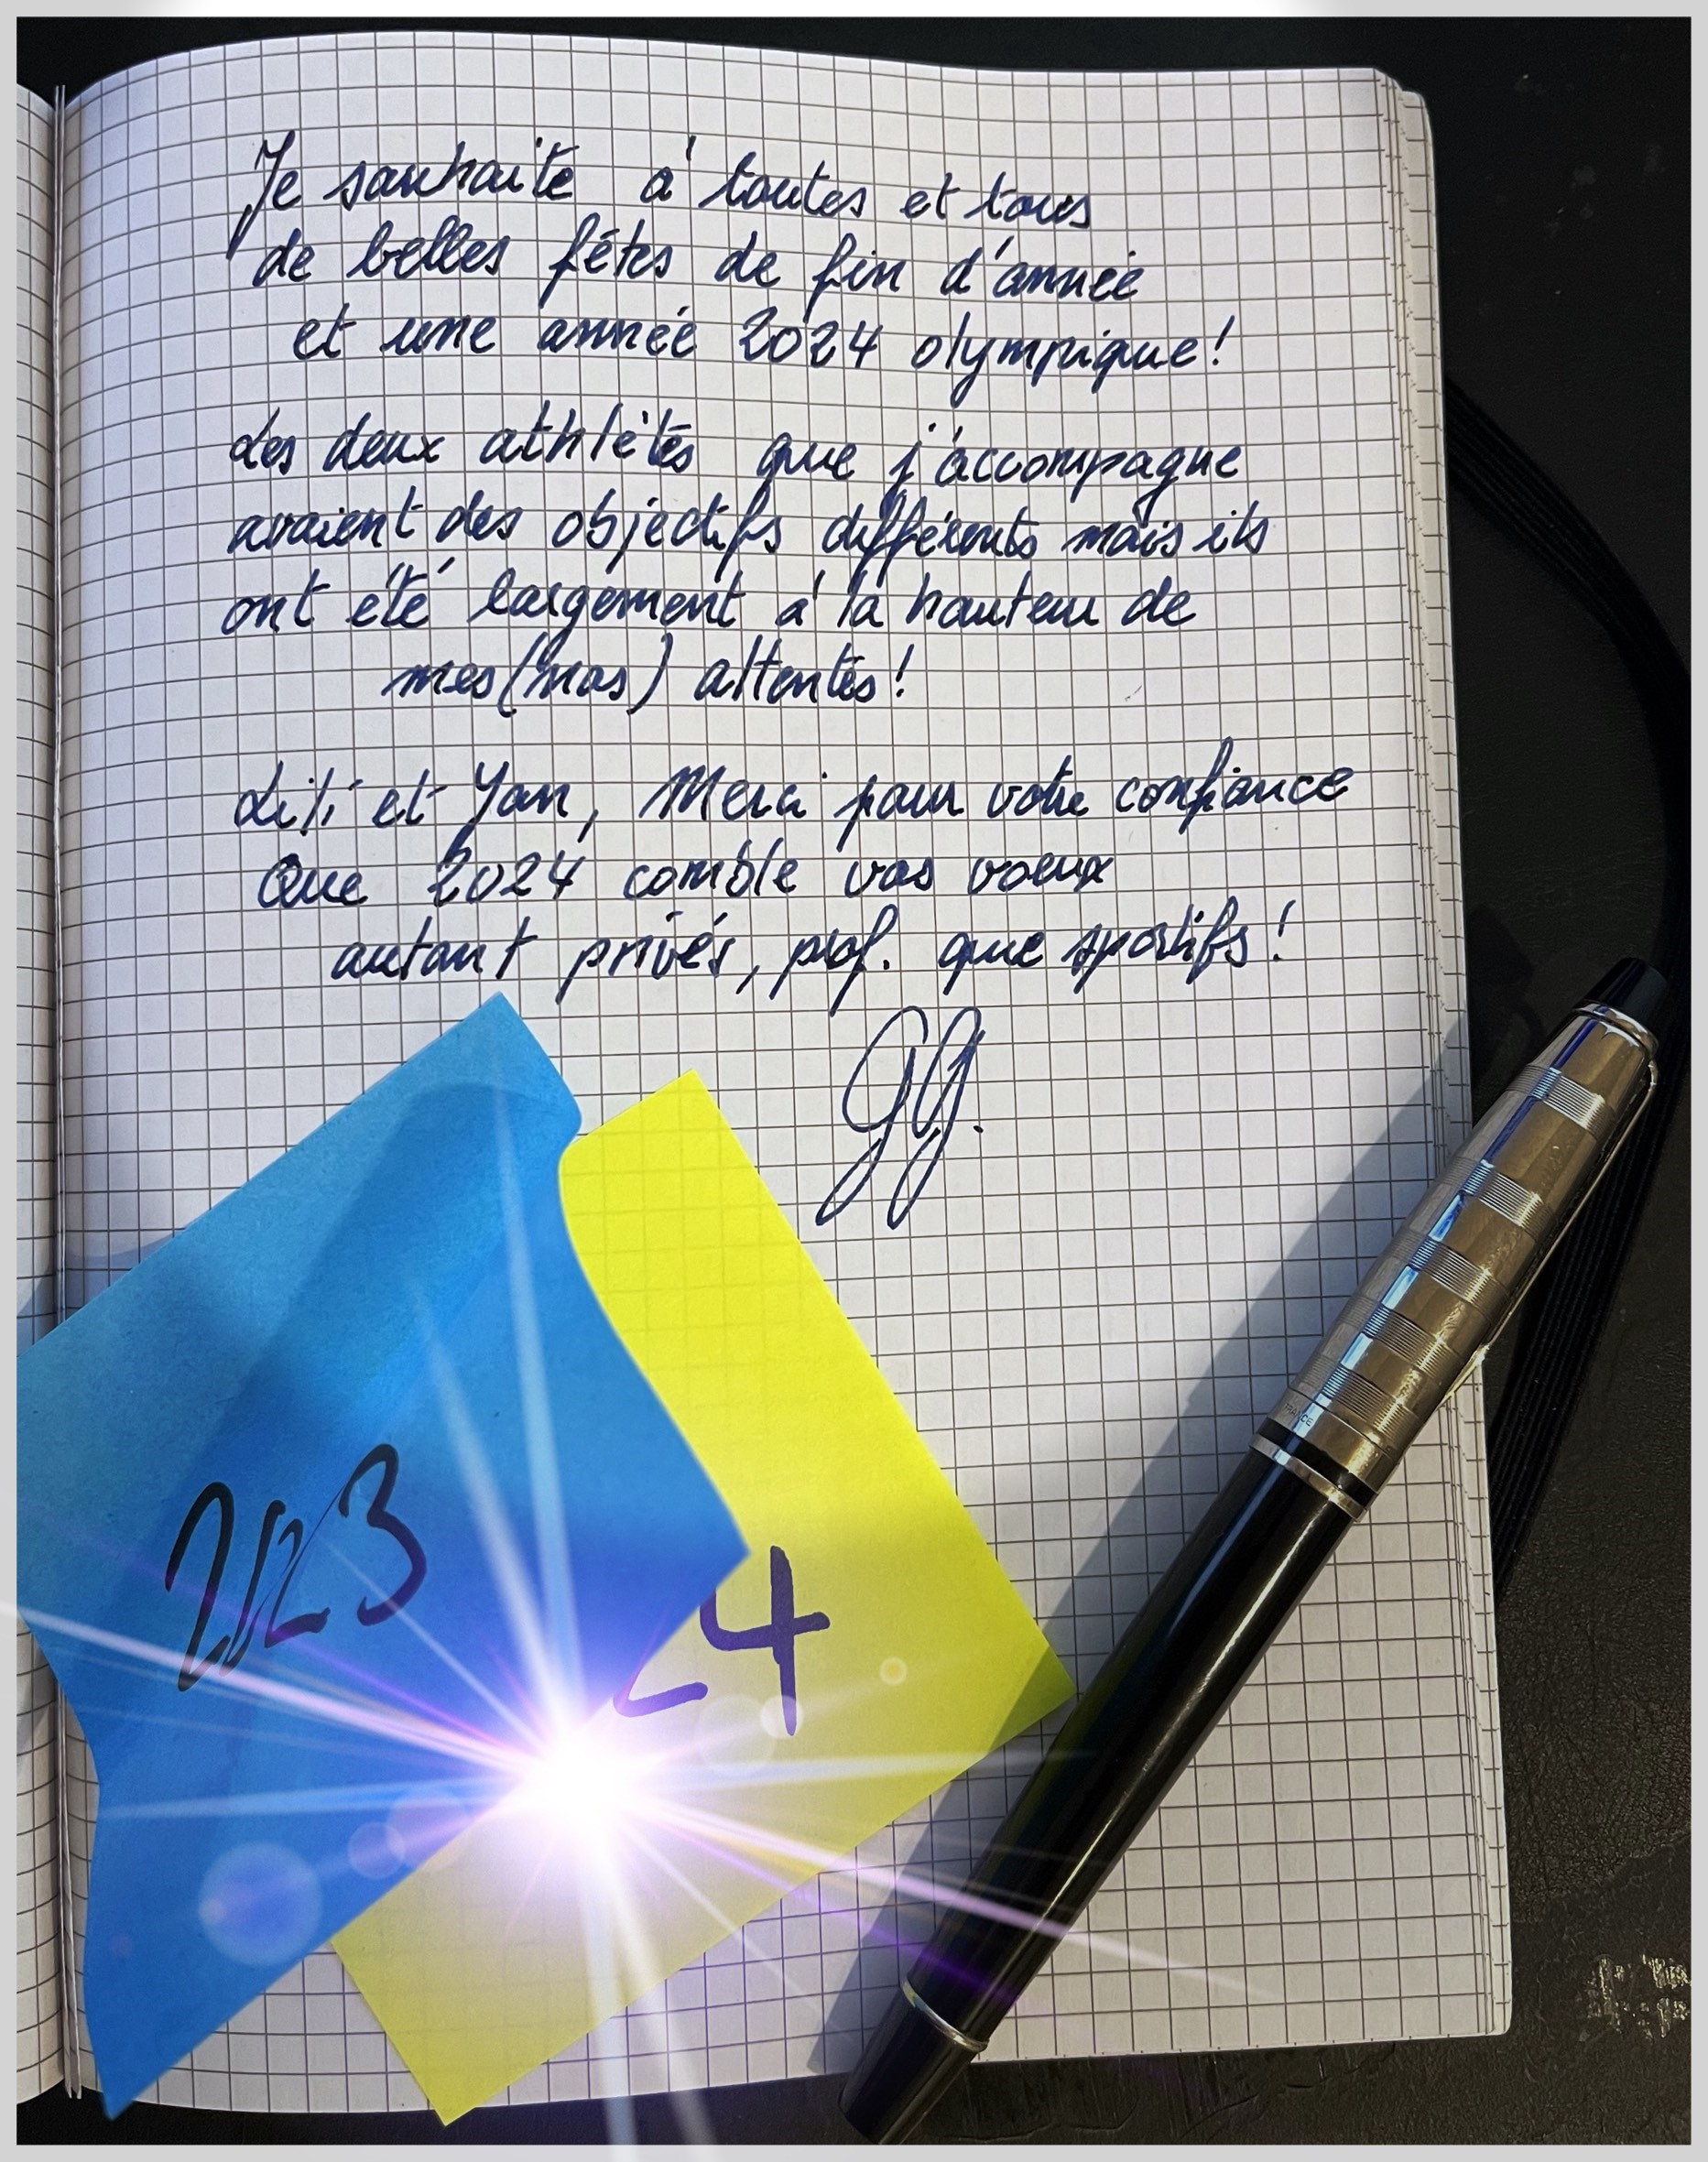 Je souhaite à toutes et tous
de belles fêtes de fin d'année
et une année 2024 olympique!
Les deux athlètes que j'accompagne
avaient des objectifs différents mais ils
ont été largement à la hauteur de
mes (nos) attentes!
Lili et Yan, Merci pour votre confiance
Que 2024 comble vos voeux
autant privés, prof. que sportifs!
GG.
2023
24
FRANCE